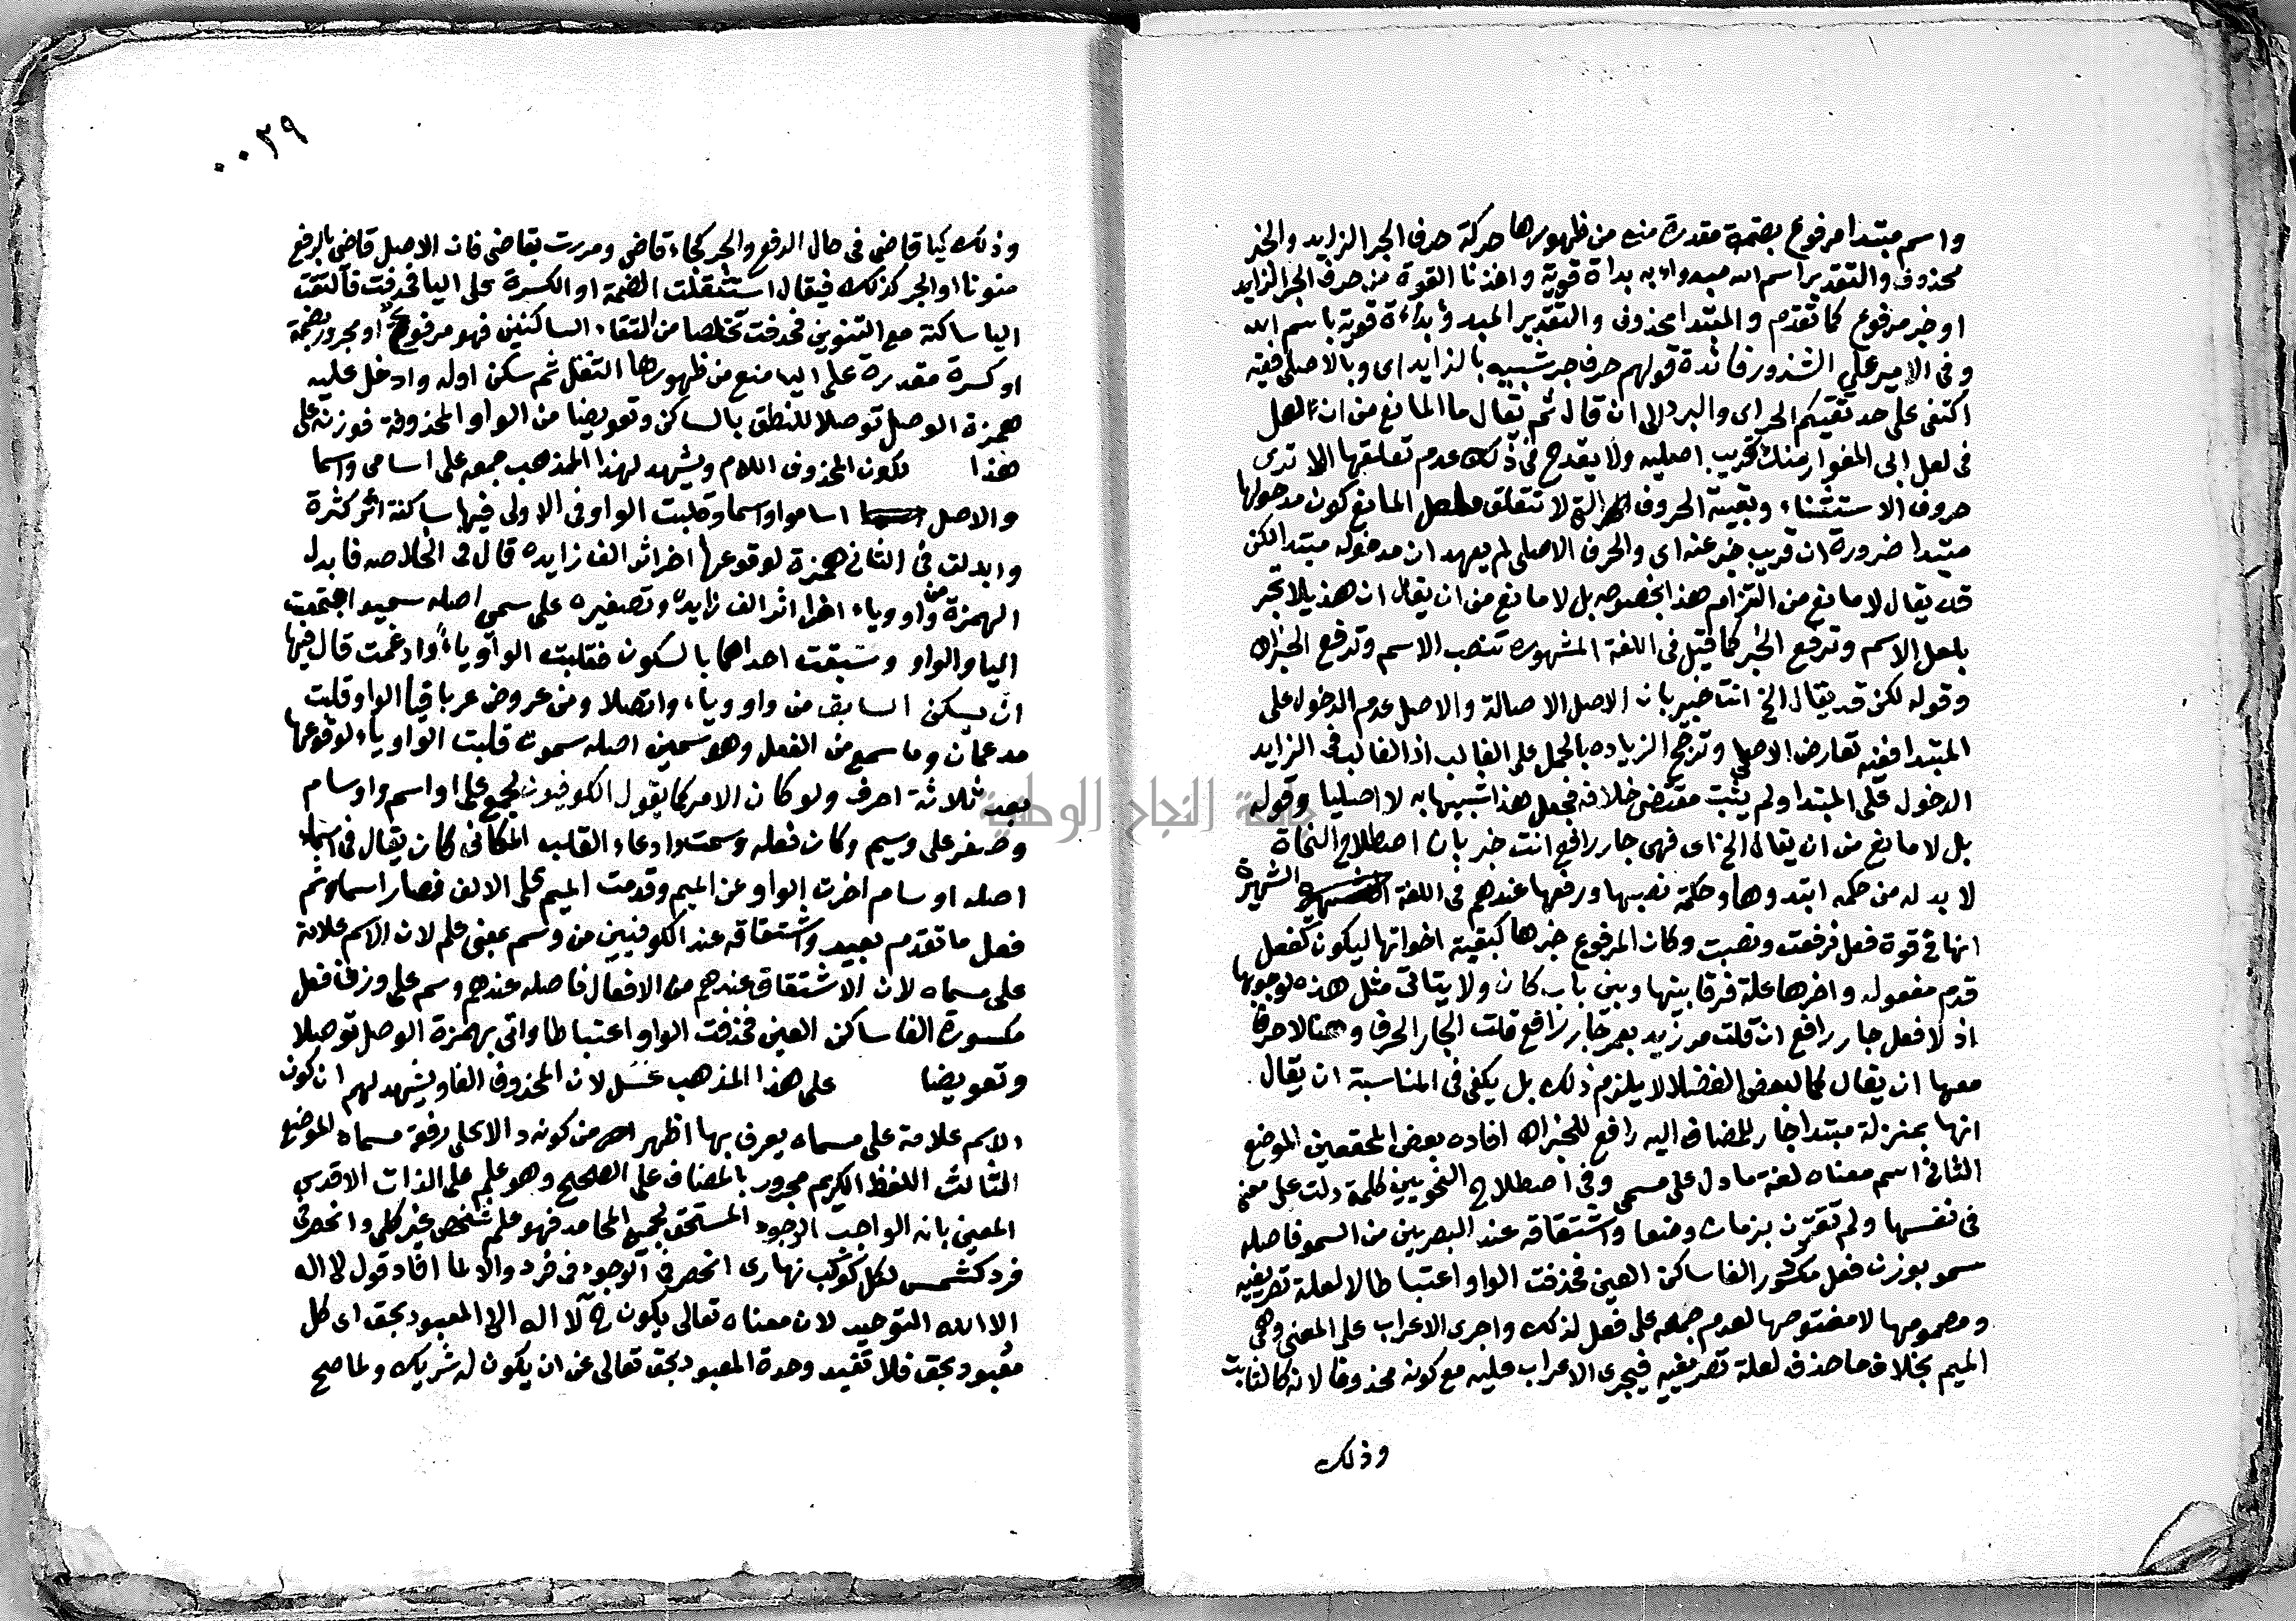 واسم مبتدا مرفوع بضمة مقدرة منع من ظهورها حركة حرف الجر الزايد والخبر
محذوف والتقدير اسم الله مبدواء به بداة قوية واخذنا القوة من حرف الجر الزايد
او خبر مرفوع كما تقدم والمبتدا محذوف والتقدير المبدؤ بداءة قوية باسم الله
وفي الامير علي الشذور فائدة قولهم حرف جر شبيه بالزايد اي وبالاصلي ففيه
اكتفى على حد تقيكم الحر اي والبرد الى ان قال ثم يقال ما المانع من ان لعل
في لعل ابي المغوار منك قريب اصليه ولا يقدح في ذلك عدم تعلقها الا ترى
حروف الاستثناء وبقية الحروف التي لا تتعلق المانع كون مدخولها
مبتدا ضرورة ان قريب خبر عنه اي والحرف الاصلي لم يعهد ان مدخوله مبتدا لكن
قد يقال لا مانع من التزام هذا بخصوصه بل لا مانع من ان يقال ان هذيلا تجر
بلعل الاسم وترفع الخبر كما قيل في اللغة المشهورة تنصب الاسم وترفع الخبر اه
وقوله لكن قد يقال الخ انت خبير بان الاصل الاصالة والاصل عدم الدخول على
المبتدا ففيه تعارض الاصلي وترجح الزياده بالحمل على الغالب اذ الغالب في الزايد
الدخول على المبتدا ولم يثبت مقتضى خلافه فجعل هذا شبيها به لا اصليا وقوله
بل لا مانع من ان يقال الخ اي فهي جار رافع انت خبر بان اصطلاح النحاة
لا بد له من حكمه ابتدوها وحكمة نصبها ورفعها عندهم في اللغة الشهيرة
انها في قوة فعل فرفعت ونصبت وكان المرفوع خبرها كبقية اخواتها ليكون كفعل
قدم مفعوله واخر فاعله فرقا بينها وبين باب كان ولا يتاتى مثل هذه لوجوبها
اذ لا فعل جار رافع ان قلت مر زيد بعمر جار رافع قلت الجار الحرف وهنا لا حرف
معها ان يقال كما لبعض الفضلا لا يلزم ذلك بل يكفي في المناسبة ان يقال
انها بمنزلة مبتدا جار للمضاف اليه رافع للخبر اه افاده بعض المحققين الموضع
الثاني اسم معناه لغة ما دل على مسمى وفي اصطلاح النحويين كلمة دلت على معنى
في نفسها ولم تقترن بزمان وضعا واشتقاقه عند البصريين من السمو فاصله
سمو بوزن فعل مكسور الفا ساكن العين فحذفت الواو اعتباطا لا لعلة تصريفيه
ومضمومها لا مفتوحها لعدم جمعه على فعل لذلك واجرى الاعراب على المعنى وهي
الميم بخلاف ما حذف لعلة تصريفيه فيجرى الاعراب عليه مع كونه محذوفا لانه كالثابت
وذلك
٠٠٣٩
وذلك كيا قاضي في حال الرفع والجر كجاء قاضي ومررت بقاضي فان الاصل قاضي بالرفع
منونا او الجر كذلك فيقال استثقلت الضمة او الكسرة على اليا فحذفت فالتقت
اليا ساكنة مع التنوين فحذفت تخلصا من التقاء الساكنين فهو مرفوع او مجرور بضمة
او كسرة مقدرة على اليا منع من ظهورها الثقل ثم سكن اوله وادخل عليه
همزة الوصل توصلا للنطق بالساكن وتعويضا من الواو المحذوفة فوزنه على
هذا لكون المحذوف اللام ويشهد لهذا المذهب جمعه على اسامي واسما
والاصل اسامو واسماو قلبت الواو في الاولى فيها ساكنة اثر كثرة
وابدلت في الثاني همزة لوقوعها اخرا اثر الف زايده قال في الخلاصه فابدل
الهمزة من واو وياء اخرا اثر الف زايده وتصغيره على سمي اصله سميو اجتمعت
اليا والواو وسبقت احداهما بالسكون فقلبت الواو ياء وادغمت قال فيها
ان يسكن السابق من واو وياء واتصلا ومن عروض عريا فيا الواو قلبن
مدغمان وما سمع من الفعل وهو سمين اصله سموت قلبت الواو ياء لوقوعها
بعد ثلاثة احرف ولو كان الامر كما يقول الكوفيون لجمع على اواسم واوسام
وصغر على وسيم وكان فعله وسمت وادعاء القلب المكاني كان يقال في اسماء
اصله اوسام اخرت الواو عن الميم وقدمت الميم على الالف فصار اسماو ثم
فعل ما تقدم بعيد واشتقاقه عند الكوفيين من وسم بمعنى علم لان الاسم علامة
على مسماه لان الاشتقاق عندهم من الافعال فاصله عندهم وسم على وزن فعل
مكسورة الفا ساكن العين فحذفت الواو اعتباطا واتي بهمزة الوصل توصلا
وتعويضا على هذا المذهب عسل لان المحذوف الفا ويشهد لهم ان كون
الاسم علامة على مسماه يعرف بها اظهر من كونه دالا على رفعة مسماه الموضع
الثالث اللفظ الكريم مجرور بالمضاف على الصحيح وهو علم على الذات الاقدس
المعين بانه الواجب الوجود المستحق لجميع المحامد فهو علم شخصي غير كلي وانحصر في
فرد كشمس لكل كوكب نهاري انحصر في الوجود في فرد والا لما افاد قول لا اله
الا الله التوحيد لان معناه تعالى يكون ح لا اله الا المعبود بحق اي كل
معبود بحق فلا تفيد وحدة المعبود بحق تعالى عن ان يكون له شريك ولما صح
جامعة النجاح الوطنية